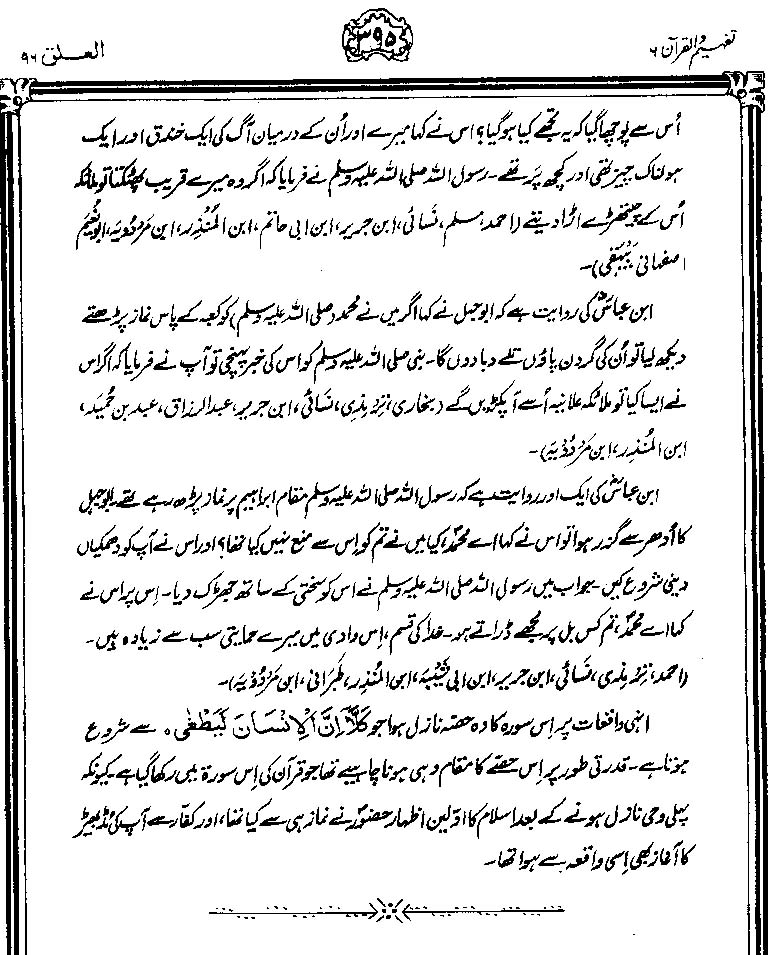 تفہیم القرآن ۶
۳۹۵
العلق ۹۶
اُس سے پوچھا گیا کہ یہ تجھے کیا ہو گیا؟ اس نے کہا میرے اور اُن کے درمیان آگ کی ایک خندق اور ایک
ہولناک چیز تھی اور کچھ پَر تھے۔ رسول اللہ صلی اللہ علیہ وسلم نے فرمایا کہ اگر وہ میرے قریب پھٹکتا تو ملائکہ
اُس کے چیتھڑے اڑا دیتے (احمد، مسلم، نَسائی، ابن جریر، ابن ابی حاتم، ابن المُنْذِر، ابن مَرْدُوْیَہ، ابو نُعَیم
اصفہانی، بَیْہَقی)۔
ابن عباسؓ کی روایت ہے کہ ابو جہل نے کہا اگر میں نے محمد (صلی اللہ علیہ وسلم) کو کعبہ کے پاس نماز پڑھتے
دیکھ لیا تو اُن کی گردن پاؤں تلے دبا دوں گا۔ نبی صلی اللہ علیہ وسلم کو اس کی خبر پہنچی تو آپ نے فرمایا کہ اگر اس
نے ایسا کیا تو ملائکہ علانیہ اُسے آ پکڑیں گے (بخاری، تِرْمِذی، نَسائی، ابن جریر، عبدالرزاق، عبد بن حُمَید،
ابن المُنْذِر، ابن مَرْدُوْیَہ)۔
ابن عباسؓ کی ایک اور روایت ہے کہ رسول اللہ صلی اللہ علیہ وسلم مقام ابراہیم پر نماز پڑھ رہے تھے۔ ابو جہل
کا اُدھر سے گزر ہوا تو اس نے کہا اے محمدؐ، کیا میں نے تم کو اِس سے منع نہیں کیا تھا؟ اور اس نے آپ کو دھمکیاں
دینی شروع کیں۔ جواب میں رسول اللہ صلی اللہ علیہ وسلم نے اس کو سختی کے ساتھ جھڑک دیا۔ اِس پر اس نے
کہا اے محمدؐ، تم کس بل پر مجھے ڈراتے ہو۔ خدا کی قسم، اِس وادی میں میرے حمایتی سب سے زیادہ ہیں۔
(احمد، تِرْمِذی، نَسائی، ابن جریر، ابن ابی شَیْبَہ، ابن المُنْذِر، طَبَرانی، ابن مَرْدُوْیَہ)۔
انہی واقعات پر اِس سورہ کا وہ حصّہ نازل ہوا جو کَلَّآ اِنَّ الْاِنْسَانَ لَیَطْغٰی ۰ سے شروع
ہوتا ہے۔ قدرتی طور پر اِس حصّے کا مقام وہی ہونا چاہیے تھا جو قرآن کی اِس سورۃ میں رکھا گیا ہے کیونکہ
پہلی وحی نازل ہونے کے بعد اسلام کا اوّلین اظہار حضورؐ نے نماز ہی سے کیا تھا، اور کفّار سے آپ کی مڈبھیڑ
کا آغاز بھی اِسی واقعہ سے ہوا تھا۔